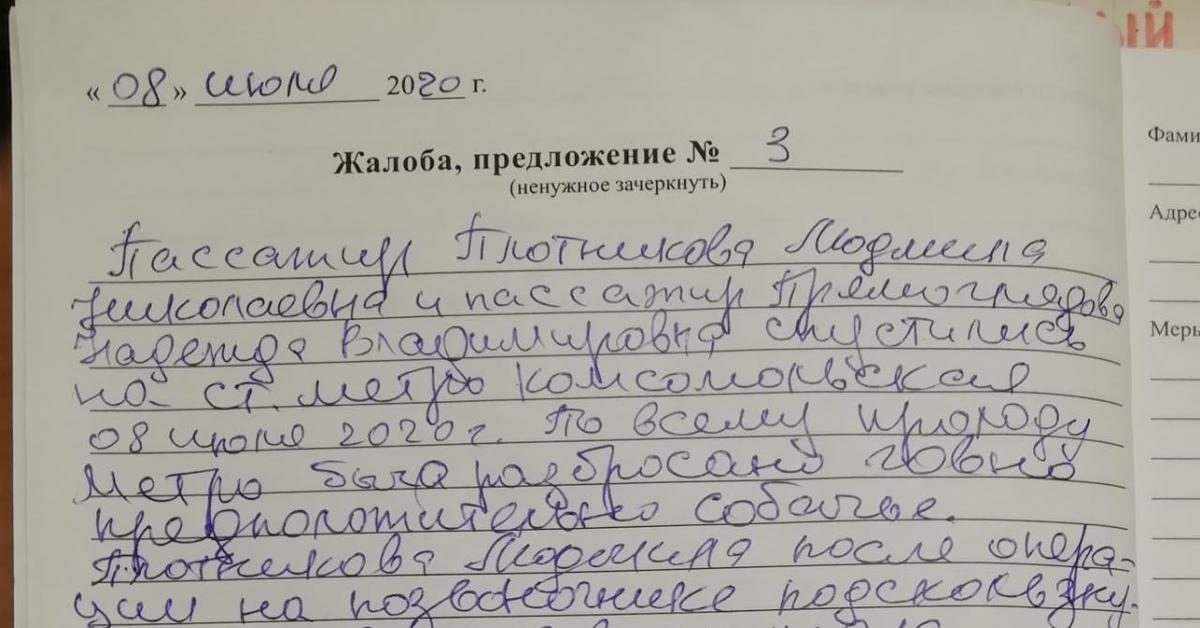 ЫЙ
« 08 » июня 2020 г.
Жалоба, предложение № 3
(ненужное зачеркнуть)
Фами
Адрес
Меры
Пассажир Плотникова Людмила
Николаевна и пассажир Прямоглядова
Надежда Владимировна спустились
на ст. метро Комсомольская
08 июня 2020 г. По всему проходу
метро было разбросано говно
предположительно собачье.
Плотникова Людмила после опера-
ции на позвоночнике подскользну-